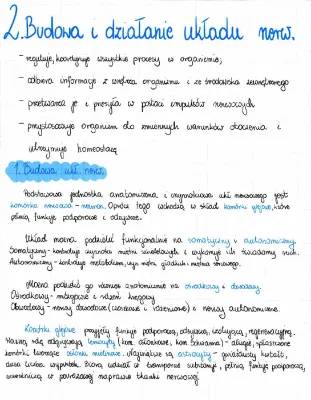 2. Budowa i działanie układu nerw.
- reguluje, koordynuje wszystkie procesy w organizmie;
- odbiera informacje z wnętrza organizmu i ze środowiska zewnętrznego
- przetwarza je i przesyła w postaci impulsów nerwowych
- przystosowuje organizm do zmiennych warunków otoczenia i
utrzymuje homeostazę
1. Budowa ukł. nerw.
Podstawowa jednostka anatomiczna i czynnościowa ukł. nerwowego jest
komórka nerwowa - neuron. Oprócz tego wchodzą w skład komórki glejowe, które
pełnią funkcje podporowe i odżywcze.
Układ można podzielić funkcjonalnie na somatyczny i autonomiczny.
Somatyczny - kontroluje czynności mięśni szkieletowych i wykonuje ich świadomy ruch.
Autonomiczny - kontroluje metabolizm, mięśni gładkich i mięśnia sercowego.
Można podzielić go również anatomicznie na ośrodkowy i obwodowy.
Ośrodkowy - mózgowie i rdzeń kręgowy
Obwodowy - nerwy obwodowe (czaszkowe i rdzeniowe) i nerwy autonomiczne.
Komórki glejowe przyjęły funkcje podporową, odżywczą, izolacyjną, regeneracyjną.
Ważną rolę odgrywają lemocyty (kom. osłonkowe, kom. Schwanna) - długie, spłaszczone
komórki tworzące osłonki mielinowe. Największe są astrocyty - gwiaździsty kształt,
duża liczba wypustek. Biorą udział w transporcie substancji, pełnią funkcje podporową,
uczestniczą w naprawie tkanki nerwowej